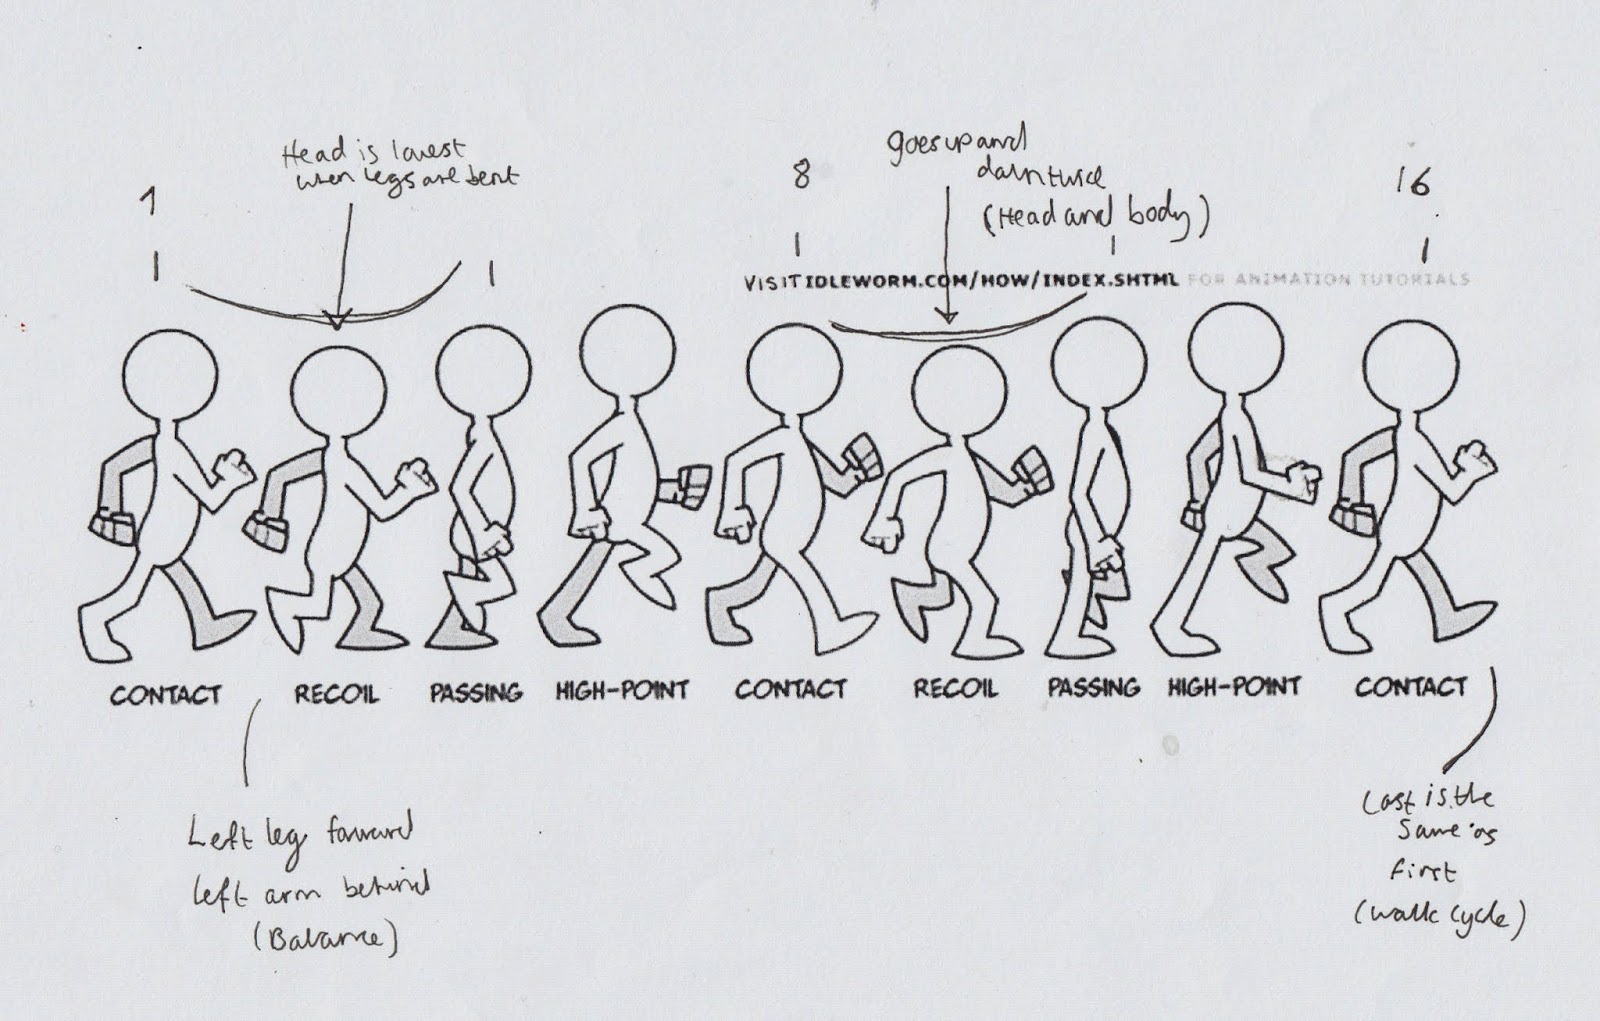 Head is lowest
when legs are bent
goes up and
down twice
(Head and body)
1
8
16
VISIT IDLEWORM.COM/HOW/INDEX.SHTML FOR ANIMATION TUTORIALS
CONTACT RECOIL PASSING HIGH-POINT CONTACT RECOIL PASSING HIGH-POINT CONTACT
Left leg forward
left arm behind
(Balance)
Last is the
same as
first
(walk cycle)